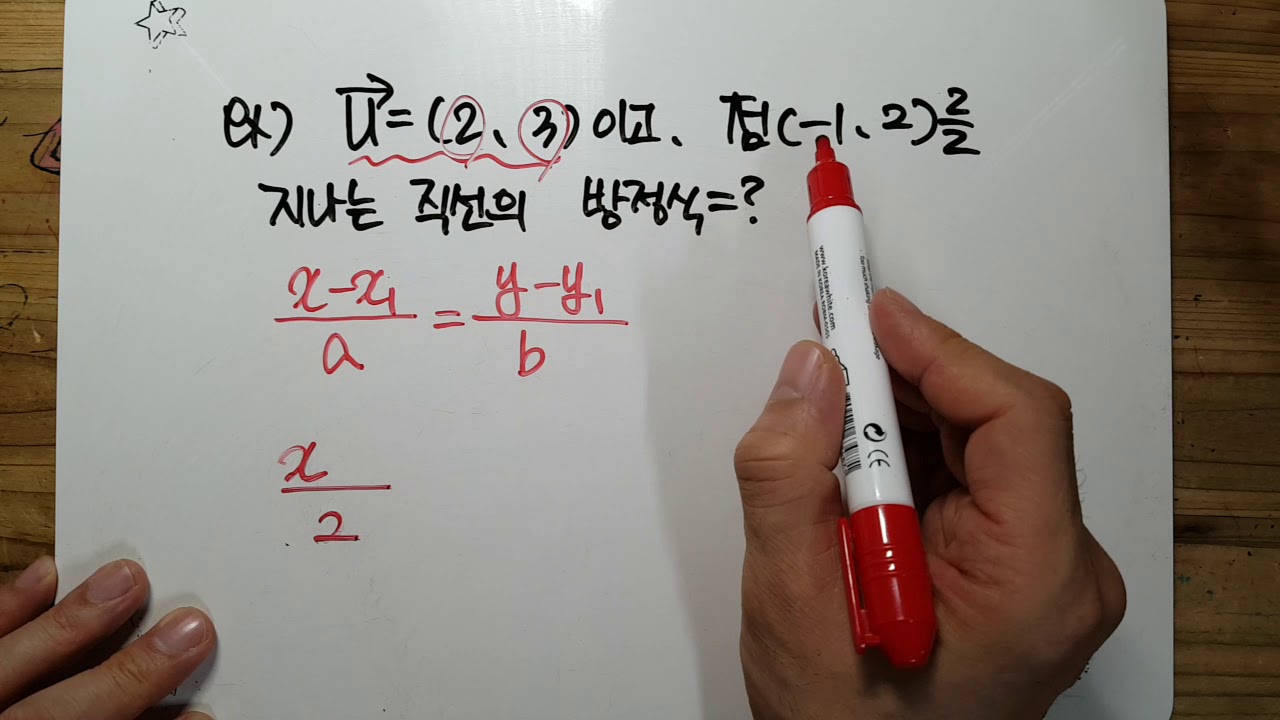 ex) u⃗=(2, 3)이고, 점(-1, 2)를
지나는 직선의 방정식=?
x-x₁/a = y-y₁/b
x/2
www.koreawhite.com
CE